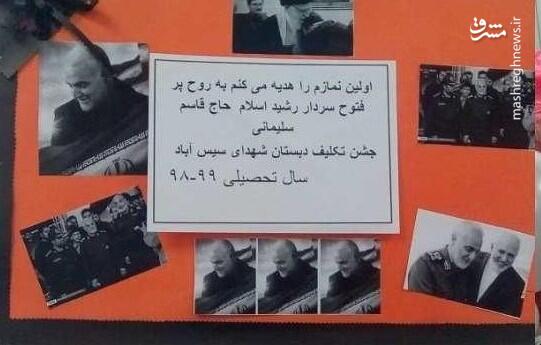 مشرق
mashreghnews.ir
اولین نمازم را هدیه می کنم به روح پر
فتوح سردار رشید اسلام حاج قاسم
سلیمانی
جشن تکلیف دبستان شهدای سیس آباد
سال تحصیلی ۹۹-۹۸